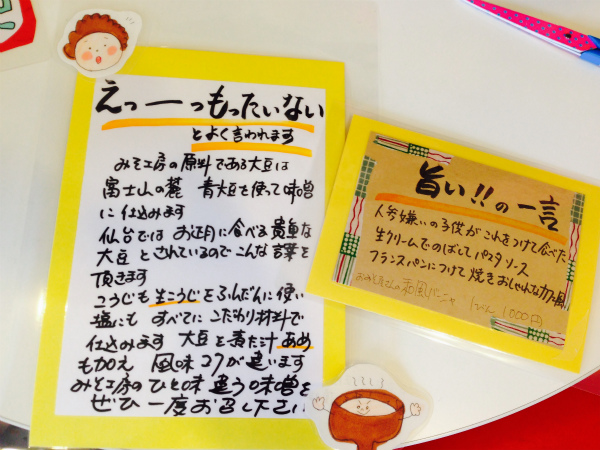 えっーっもったいない
とよく言われます
みそ工房の原料である大豆は
富士山の麓 青大豆を使って味噌
に仕込みます
仙台では お正月に食べる貴重な
大豆 とされているのでこんな言葉を
頂きます
こうじも 生こうじをふんだんに使い
塩にも すべてに こだわり材料で
仕込みます 大豆を煮た汁 あめ
も加え 風味 コクが違います
みそ工房の ひと味 違う味噌を
ぜひ 一度 お召し下さい
旨い!!の一言
人参嫌いの子供がこれをつけて食べた
生クリームでのばしてパスタソース
フランスパンにつけて焼きおしゃれなカフェ風
1びん 1,000円